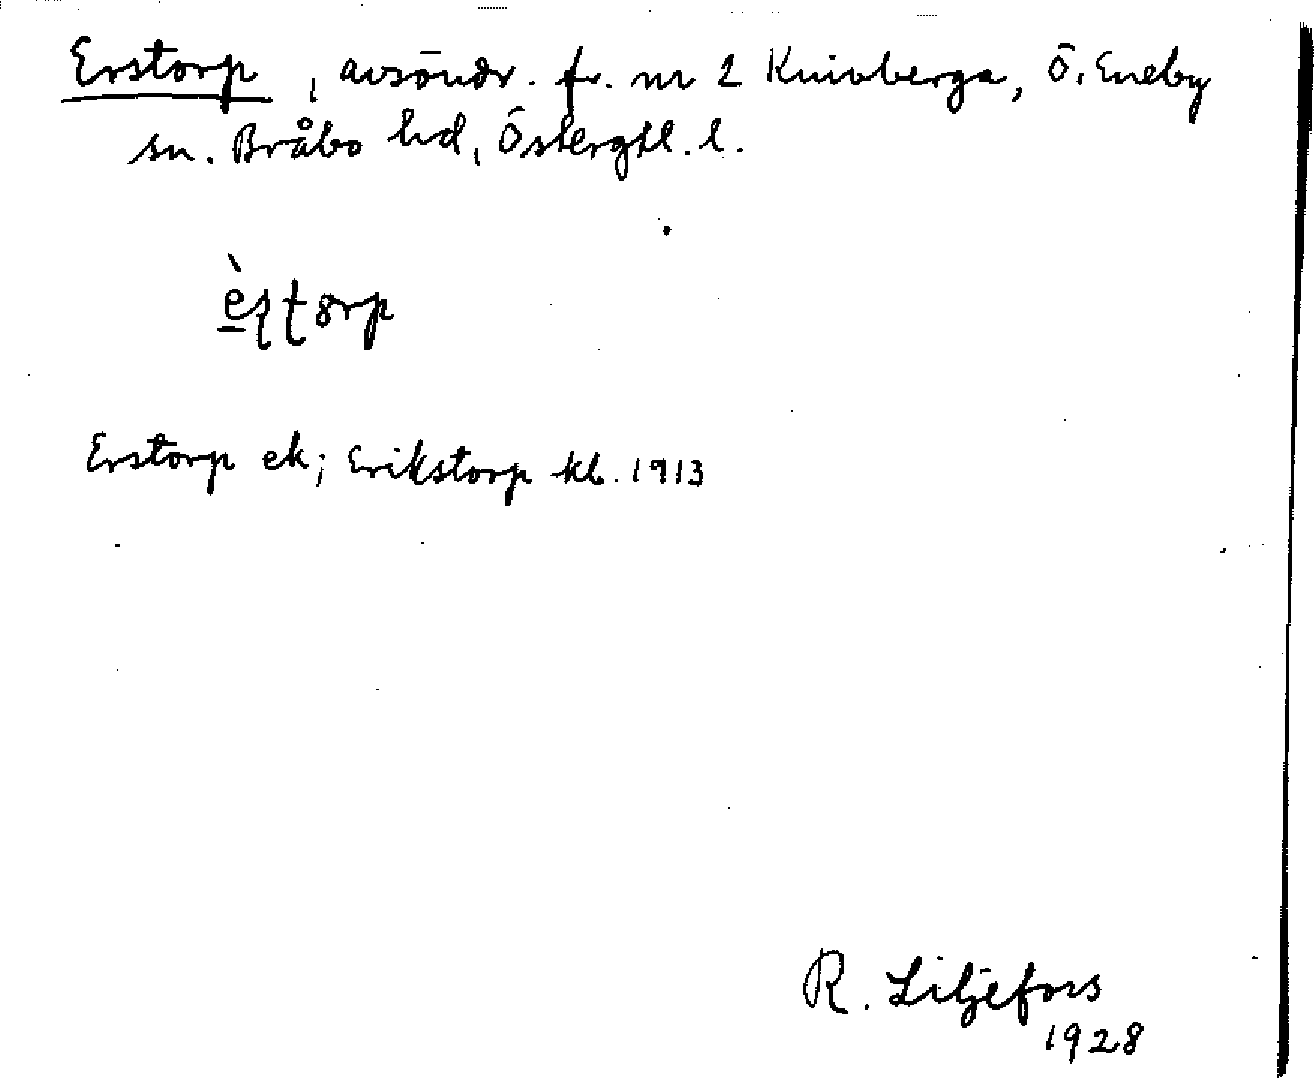 Erstorp, avsöndr. fr. nr 2 Knivberga, Ö. Eneby
sn. Bråbo hd, Östergtl. l.
Erstorp ek; Erikstorp kb. 1913
R. Liljefors
1928